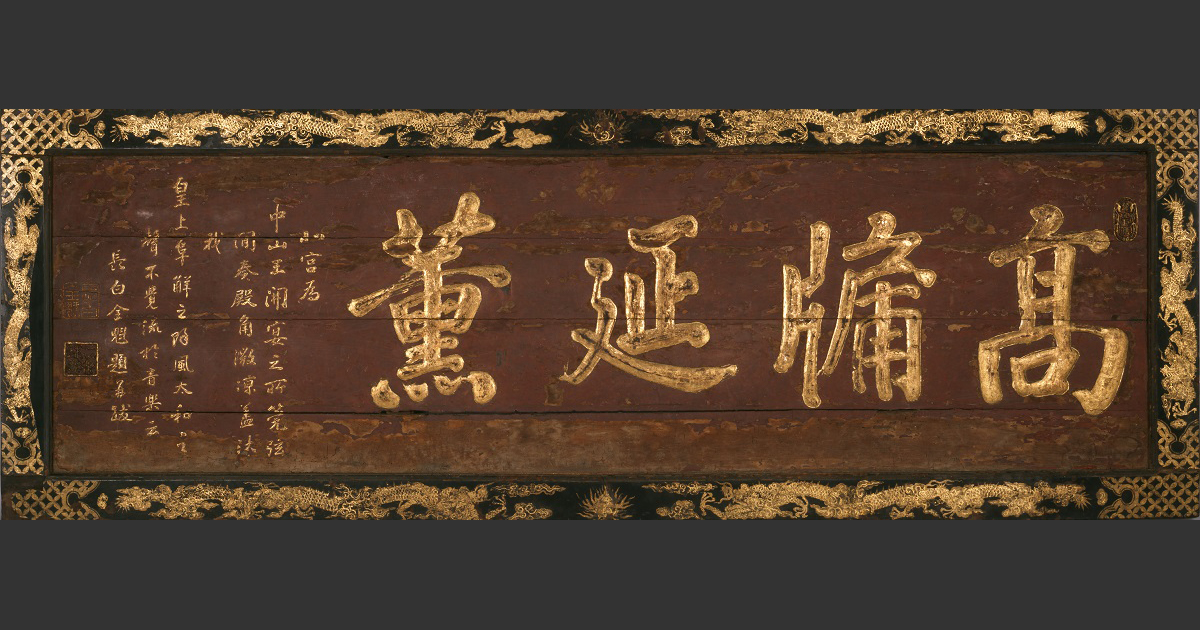 高牖延薰
北宮為
中山王開宴之所筦弦
間奏殿角微涼蓋沐
我
皇上阜解之風太和之
聲不覺流於音樂云
長白全魁題并跋